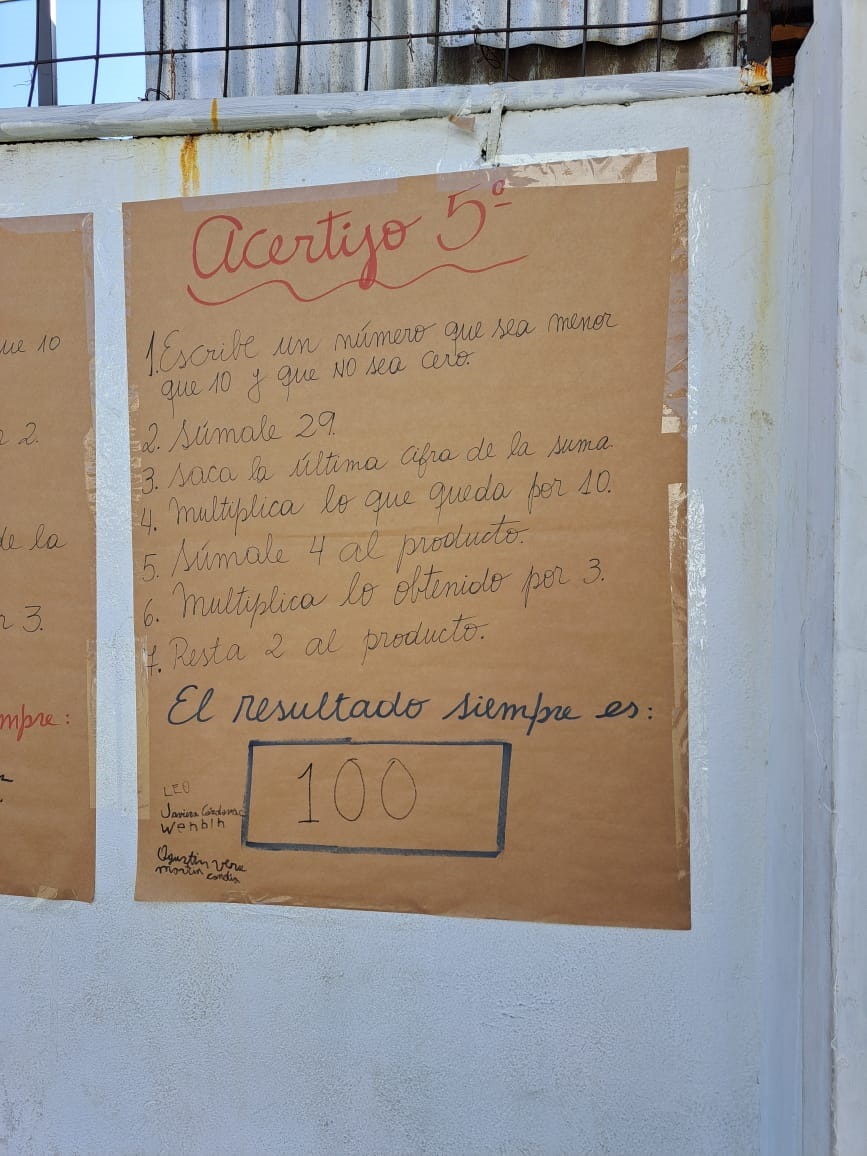 ue 10
2.
de la
3.
mpre:
Acertijo 5º
1. Escribe un número que sea menor
que 10 y que NO sea cero.
2. Súmale 29.
3. Saca la última cifra de la suma.
4. Multiplica lo que queda por 10.
5. Súmale 4 al producto.
6. Multiplica lo obtenido por 3.
7. Resta 2 al producto.
El resultado siempre es:
100
LEO
Javiera Córdova
Wenbin
Agustín Vera
Martín Candia